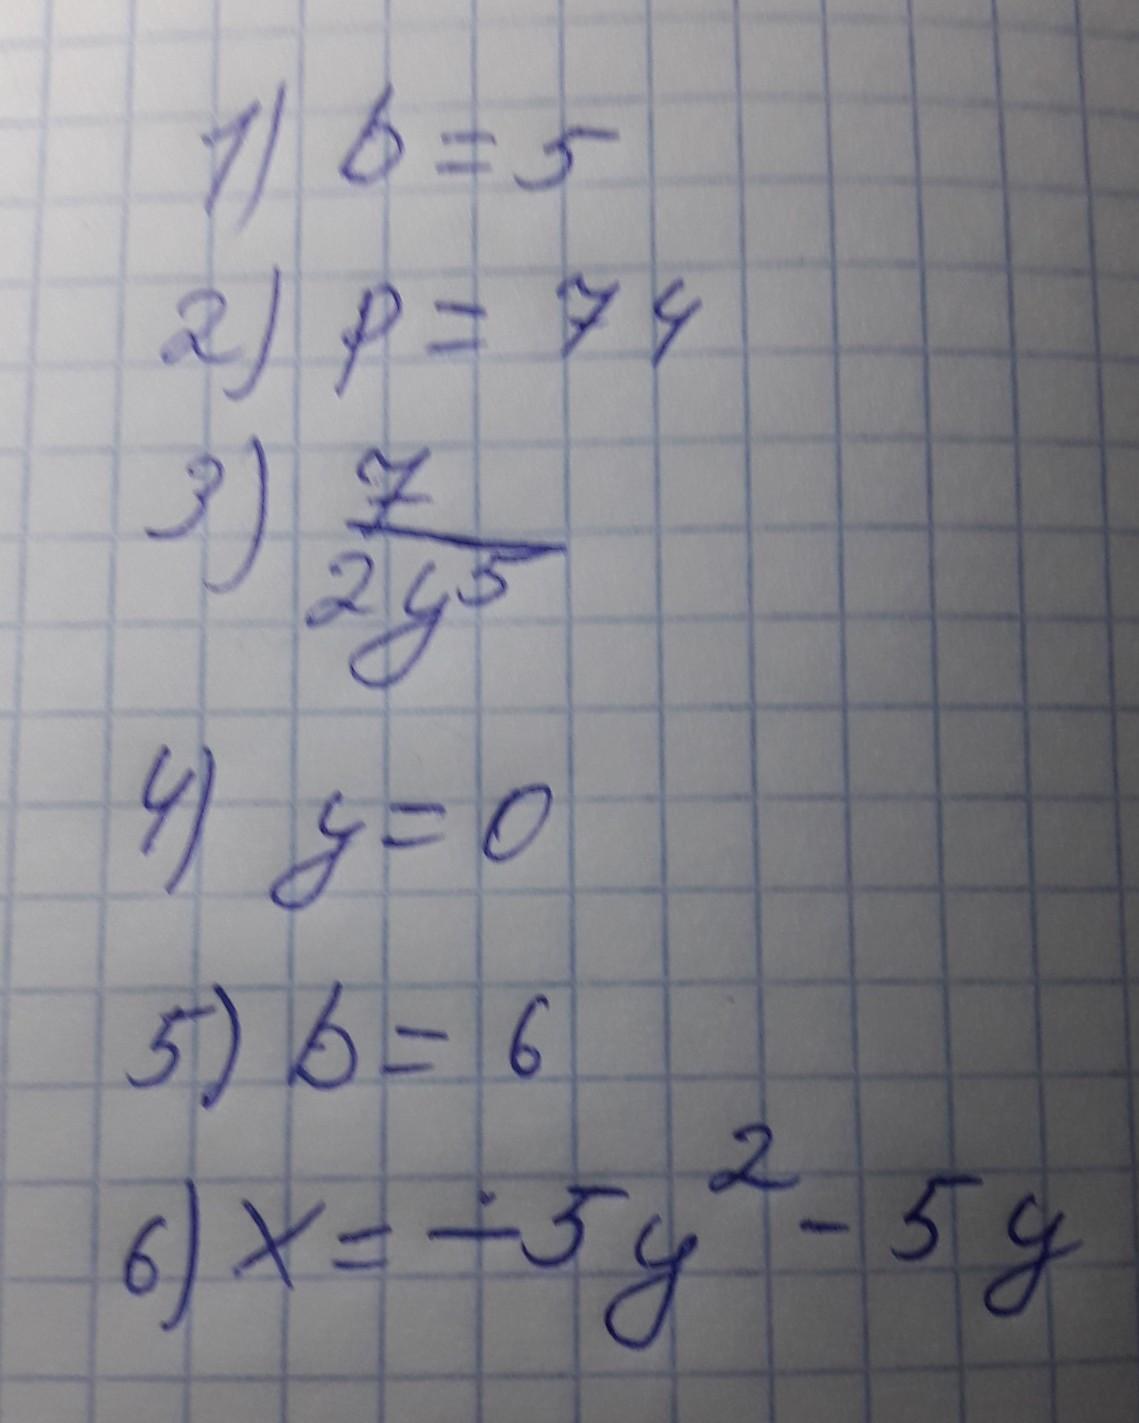 1) b = 5
2) p = 74
3) 7
2y⁵
4) y = 0
5) b = 6
6) x = -5y² - 5y